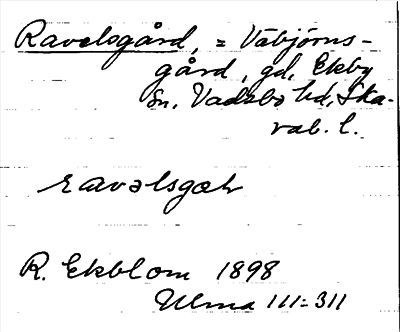 Ravelsgård, = Väbjörns-
gård, gd, Ekby
sn, Vadsbo hd, Ska-
rab. l.
ravəlsgɑh
R. Ekblom 1898
Ulma 111:311